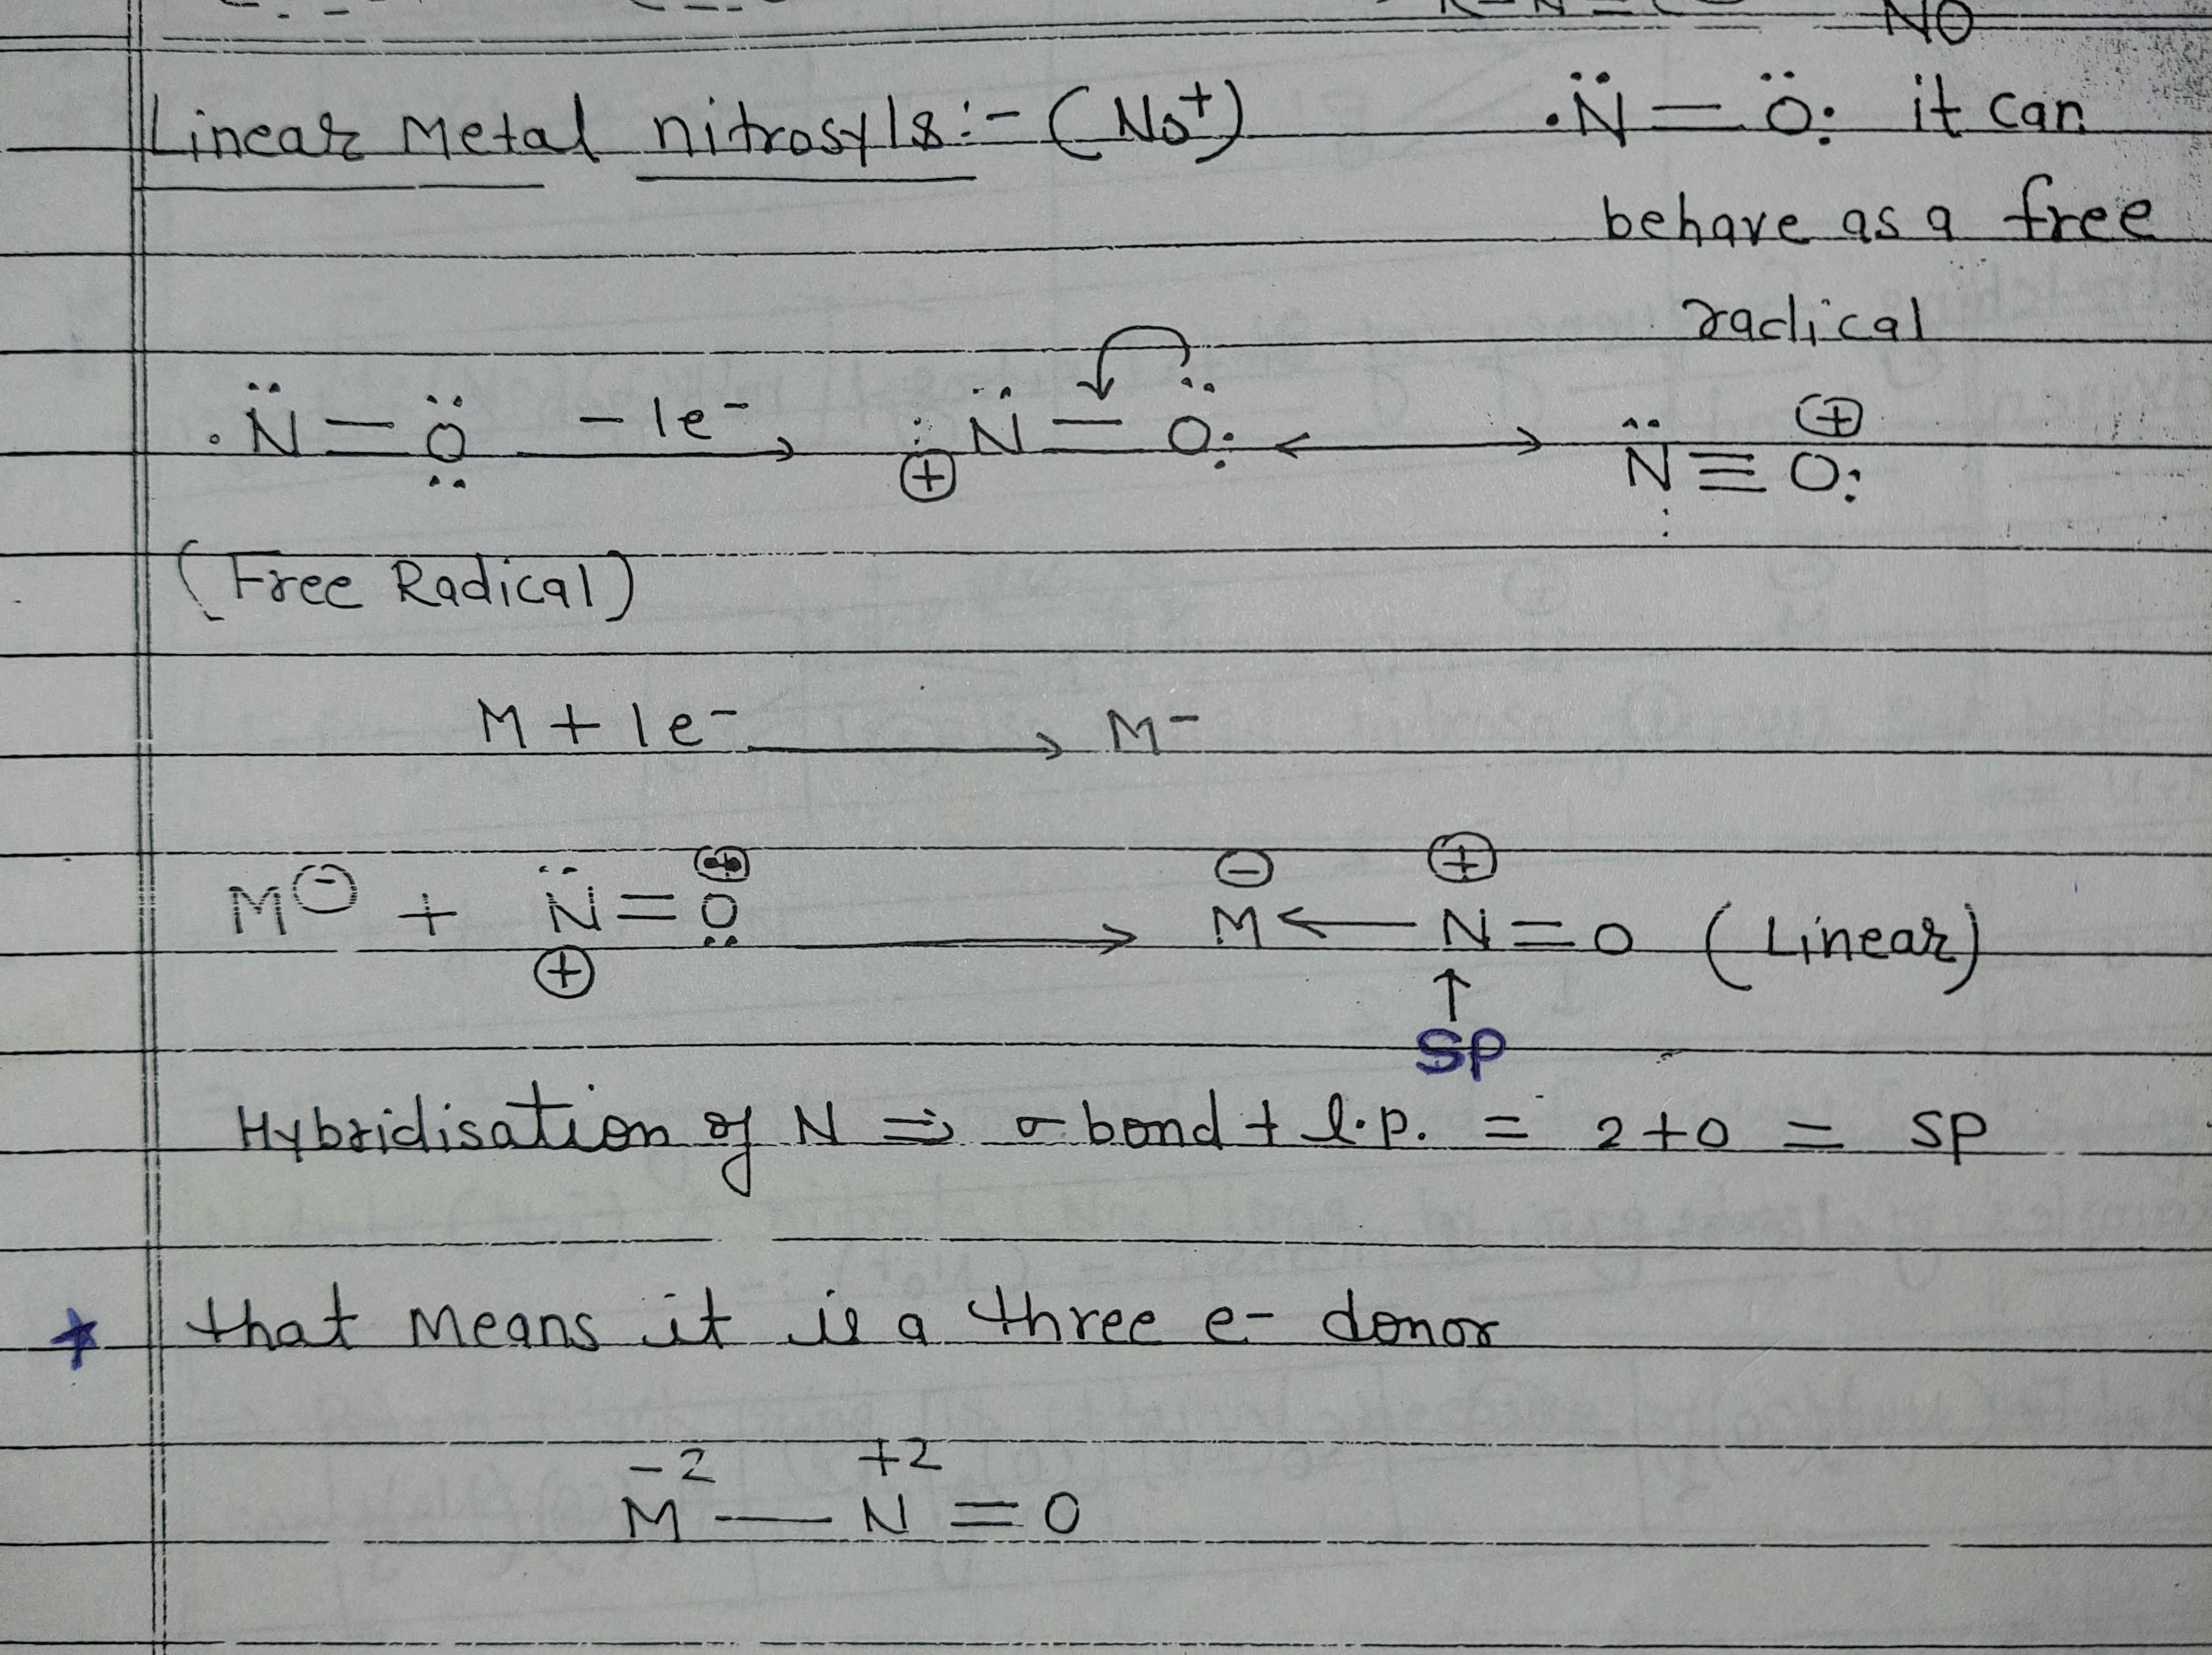 NO
Linear Metal nitrosyls:- (No⁺) ·N̈ = Ö: it can
behave as a free
radical
·N̈ = Ö -1e⁻ → ⊕ :N̈ = Ö: ↔ N̈ ≡ O: ⊕
(Free Radical)
M + 1e⁻ → M⁻
M⊖ + N̈ = O ⊕ → M⊖ ← N⊕ = O (Linear)
↑
SP
Hybridisation of N ⇒ σ bond + l.p. = 2+0 = SP
★ that Means it is a three e- donor
-2 +2
M — N = O